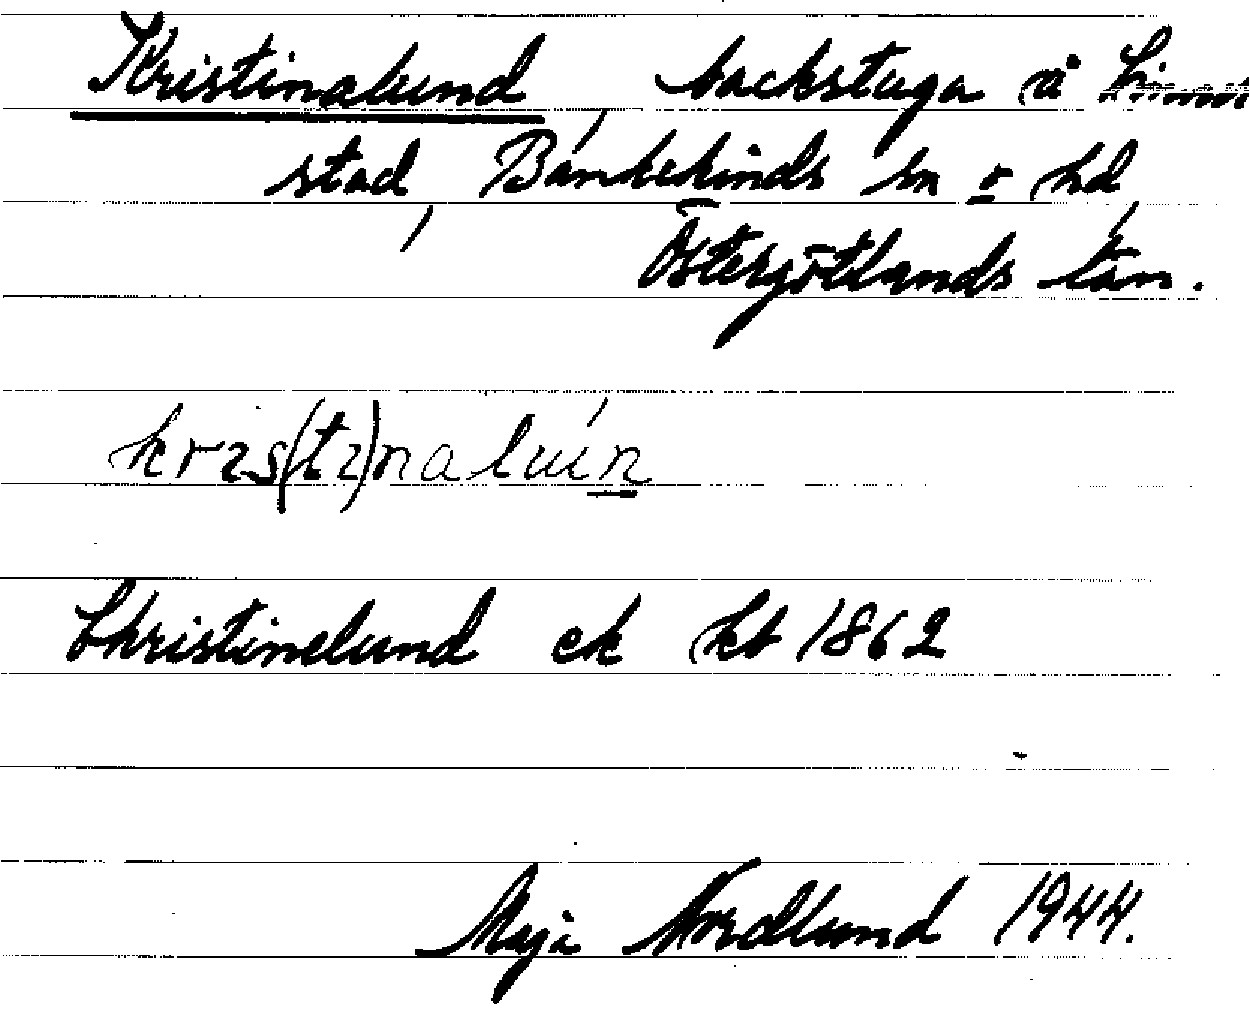 Kristinalund, backstuga å
stad, Bankekinds sn o hd,
Östergötlands län.
kris(ti)nalun
Christinelund ck kb 1862
Maja Nordlund 1944.